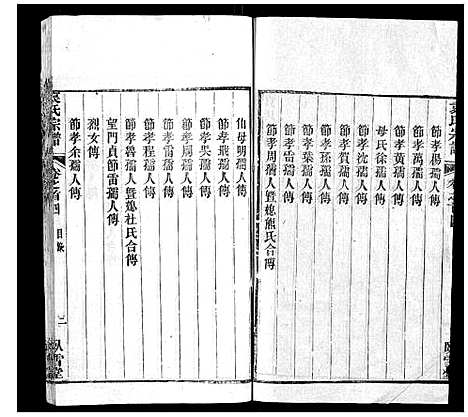 節孝楊孺人傳
節孝萬孺人傳
節孝黃孺人傳
母氏徐孺人傳
節孝沈孺人傳
節孝賀孺人傳
節孝孫孺人傳
節孝葉孺人傳
節孝雷孺人傳
節孝周孺人暨媳熊氏合傳
仙母明孺人傳
節孝龍孺人傳
節孝周孺人傳
節孝吳孺人傳
節孝程孺人傳
節孝魯孺人暨媳杜氏合傳
望門貞節雷孺人傳
烈女傳
節孝余孺人傳
袁氏宗譜
卷之首四
目錄
二
臥雪堂